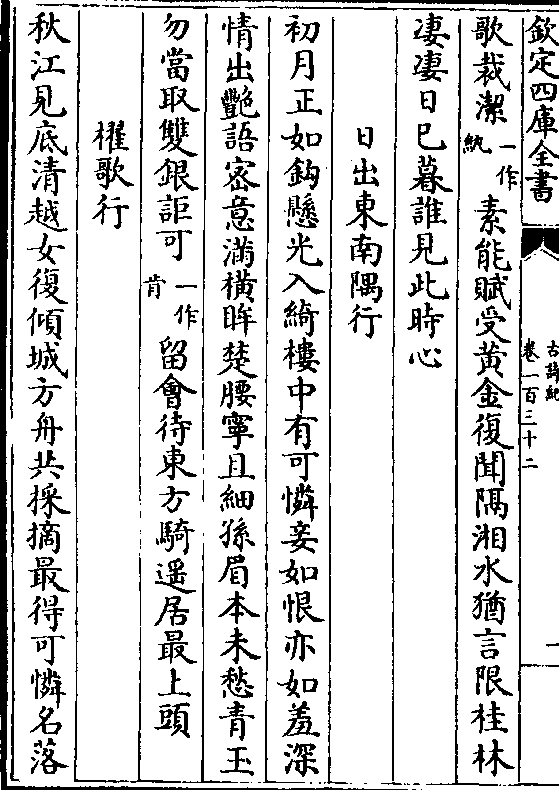 欽定四庫全書
古詩紀
卷一百三十二
一
歌裁潔一作紈素能賦受黃金復聞隔湘水猶言限桂林
凄凄日已暮誰見此時心
日出東南隅行
初月正如鈎懸光入綺樓中有可憐妾如恨亦如羞深
情出艷語宻意滿横眸楚腰寧且細孫眉本未愁青玉
勿當取雙銀詎可一作肯留會待東方騎遥居最上頭
櫂歌行
秋江見底清越女復傾城方舟共採摘最得可憐名落